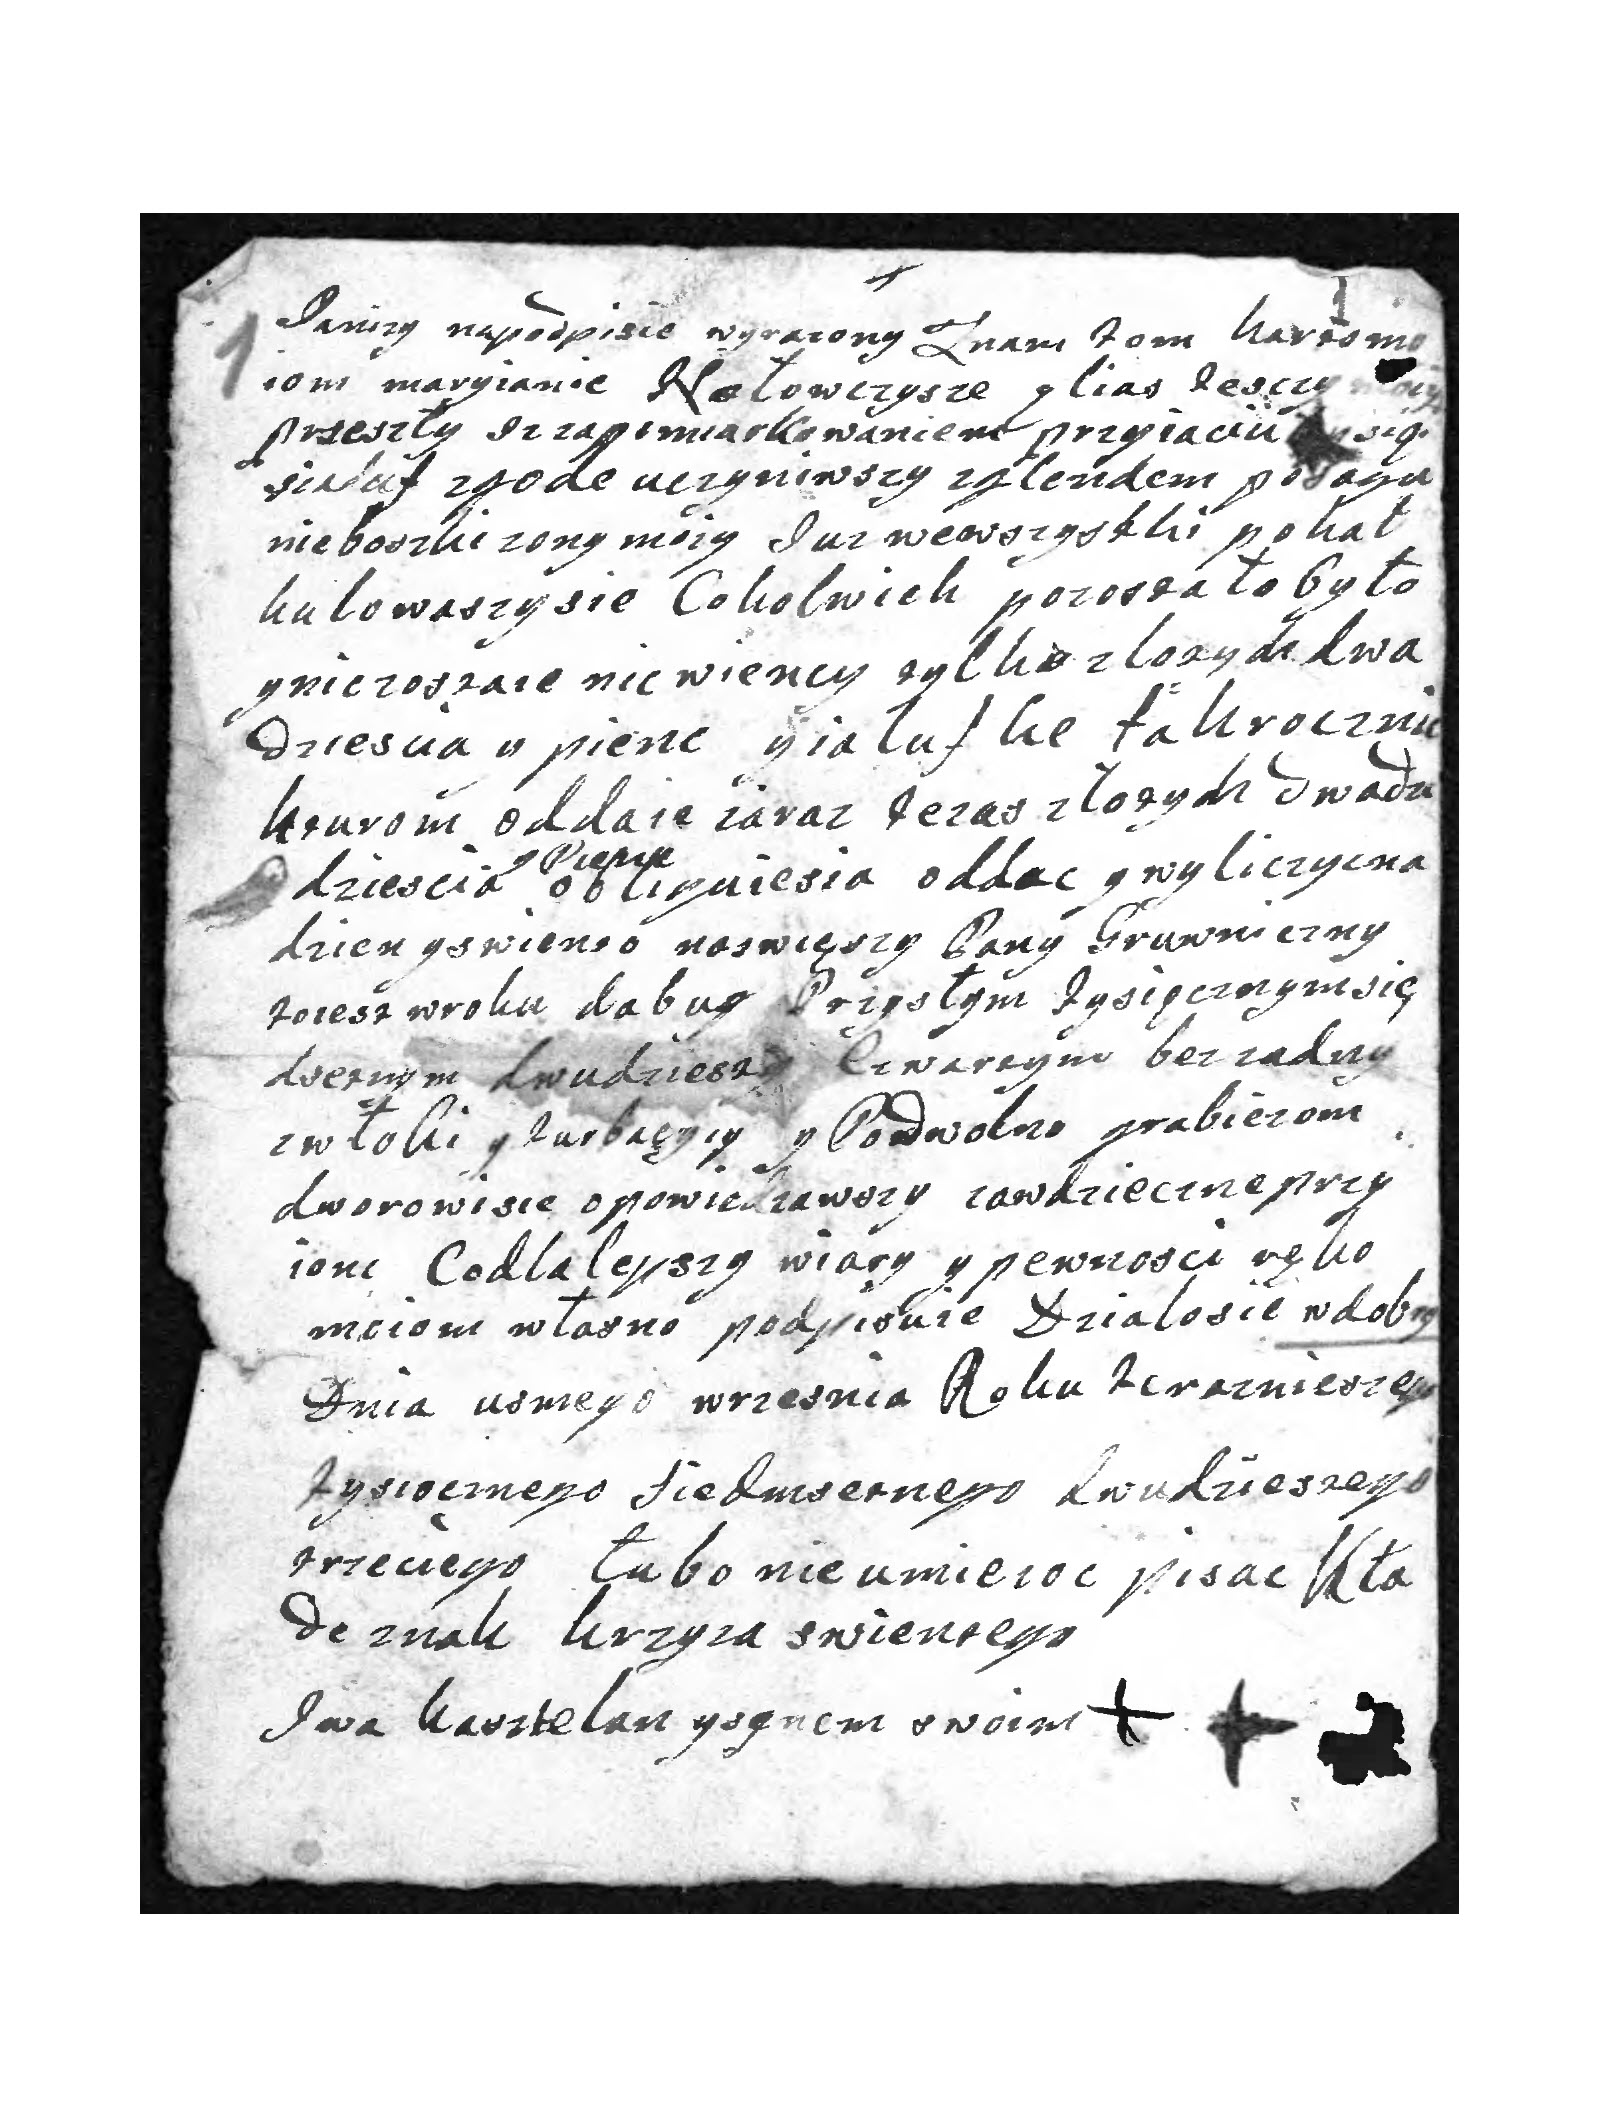 Janizy napodpisie wyrazony Znam tom kartomo
iom maryianie Notowczysze y lias tesczy
przeszły zrzapomiarkowaniem przyiaciu
sialuf zgode uczyniwszy zglendem posagu
nieboszki zony moiy Juz wewszystki pokał
kulowaszysie Cokolwiek pozostało było
yniezostaie nic wiency tylko złotych dwa
dziescia y pienc yialufke takroczniu
kturom oddaie zaraz teras złotych dwadz
dziescia y Piencz obliguiesia oddac y wyliczycna
dzien yswiento naswięszy Pany Gruwniczny
toiest wroku dabug Przystym tysięcznymsię
dsetnym dwudziesty Czwartym bez zadny
zwłoki y turbaęyiy y Podwolno grabiezom
dworowisie opowiedzawszy zawdzieczneprzy
iont Codlalepszy wiary y pewnosci ręko
moiom własno podpisuie Działosie wdobry
Dnia usmego wrzesnia Roku teraznieszego
tysiocznego siedmsetnego dwudziestego
trzeciego łubo nieumieioc pisac Kła
de znak krzyza swientego
Jwa kasztelan ysgnem swoim + +